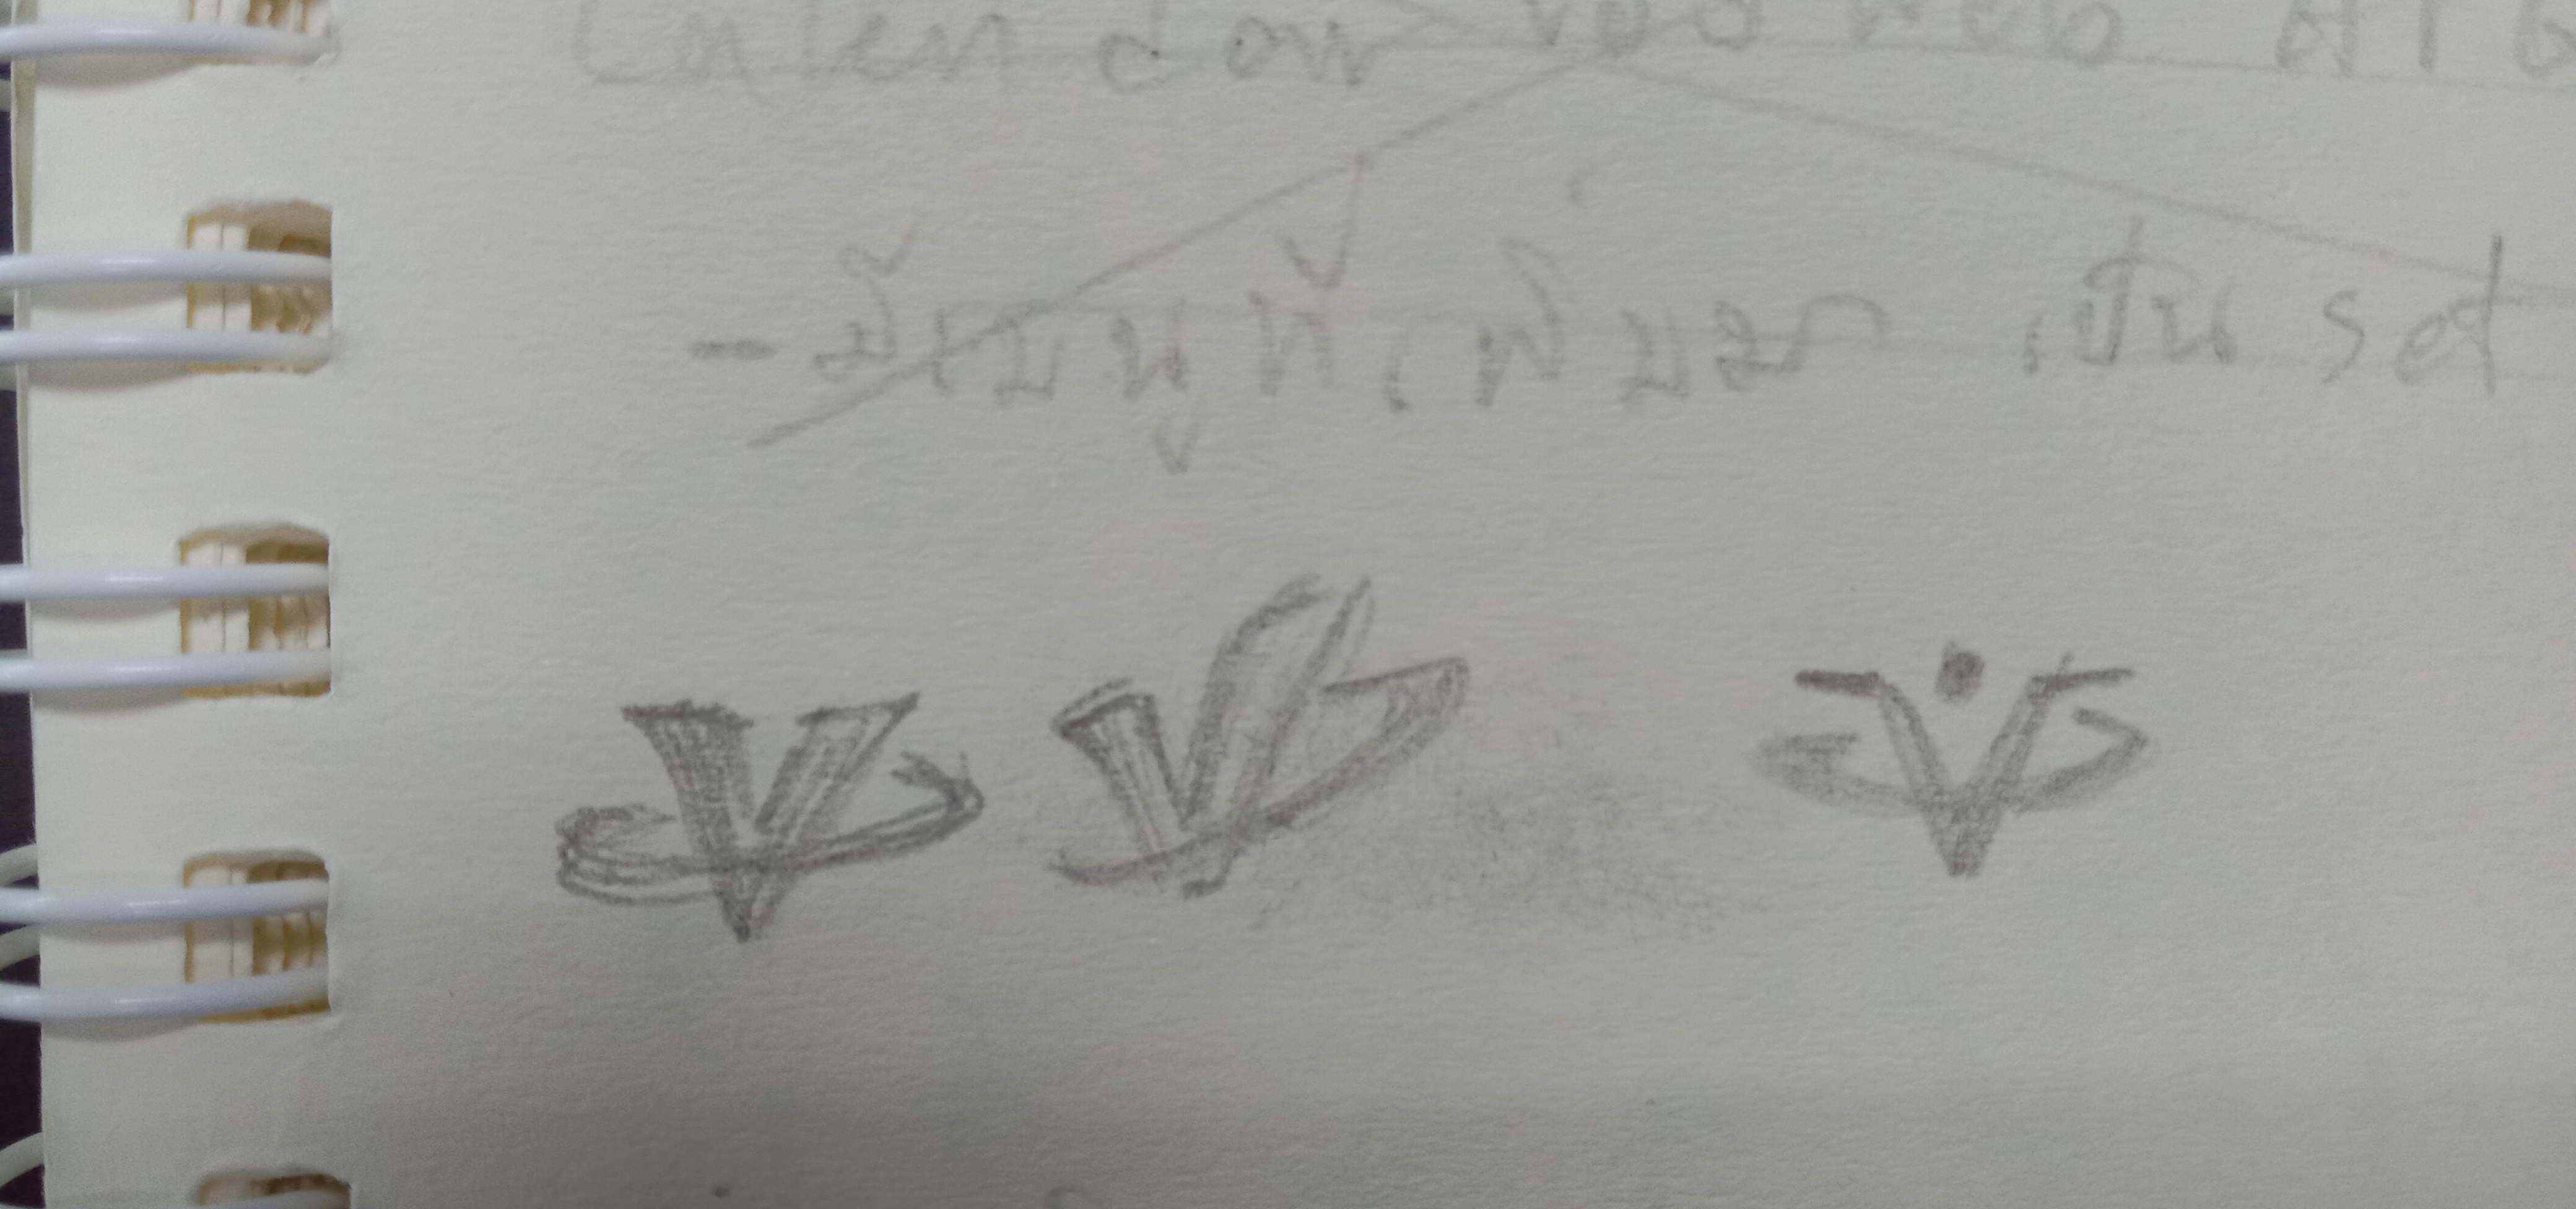 Calendar ของ
- มีเมนูที่เพิ่มมา เป็น set
V
V
V